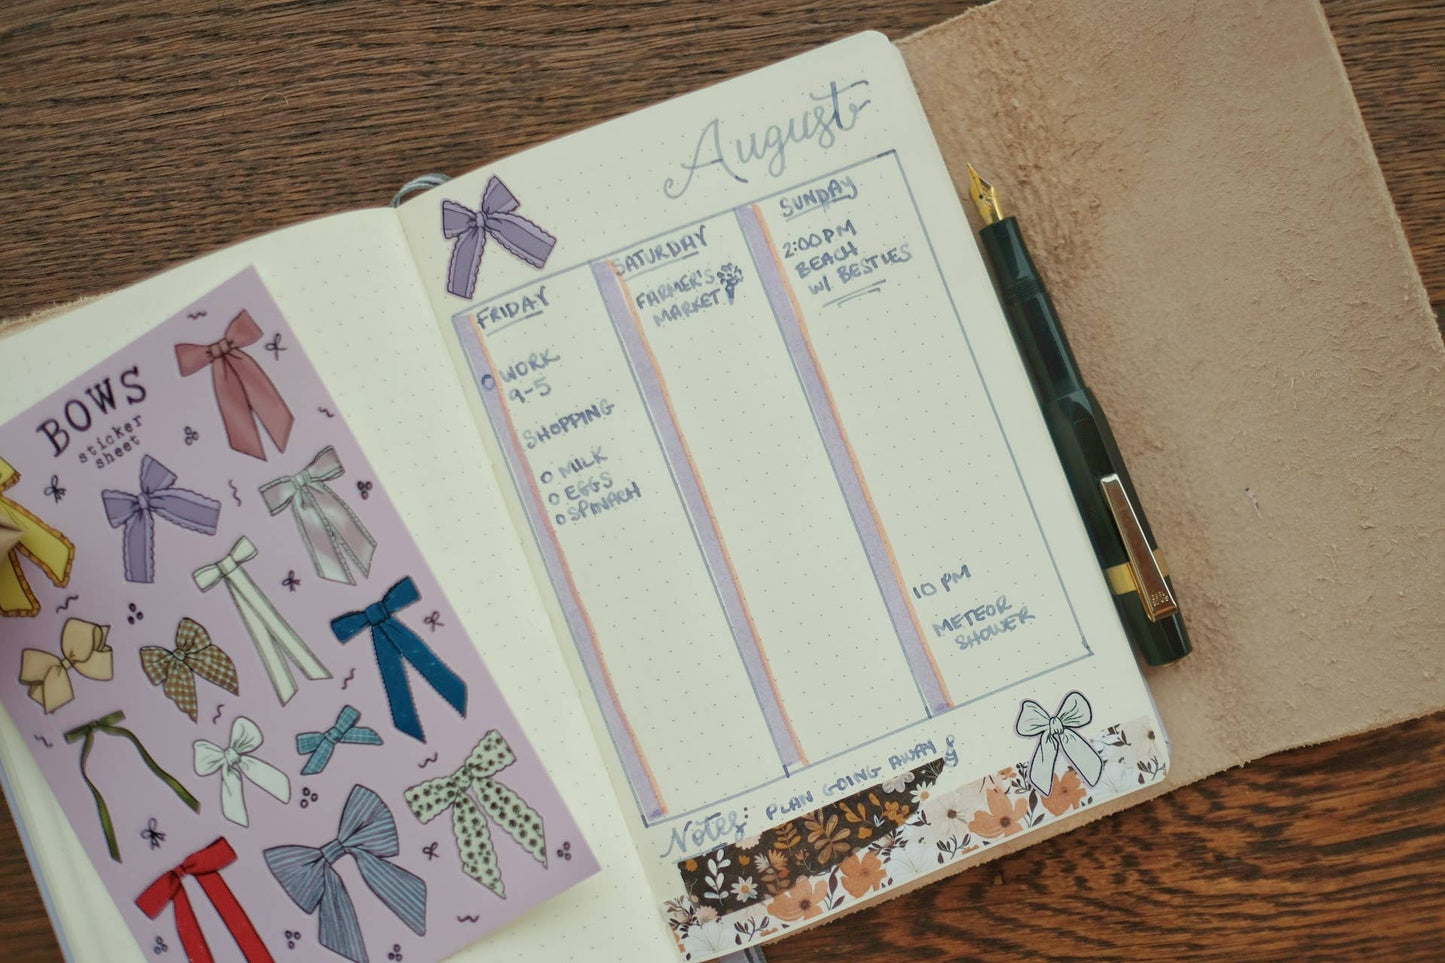 August
FRIDAY
O WORK
9-5
SHOPPING
O MILK
O EGGS
O SPINACH
SATURDAY
FARMER'S
MARKET
SUNDAY
2:00PM
BEACH
W/ BESTIES
10 PM
METEOR
SHOWER
Notes: PLAN GOING AWAY
BOWS
sticker
sheet